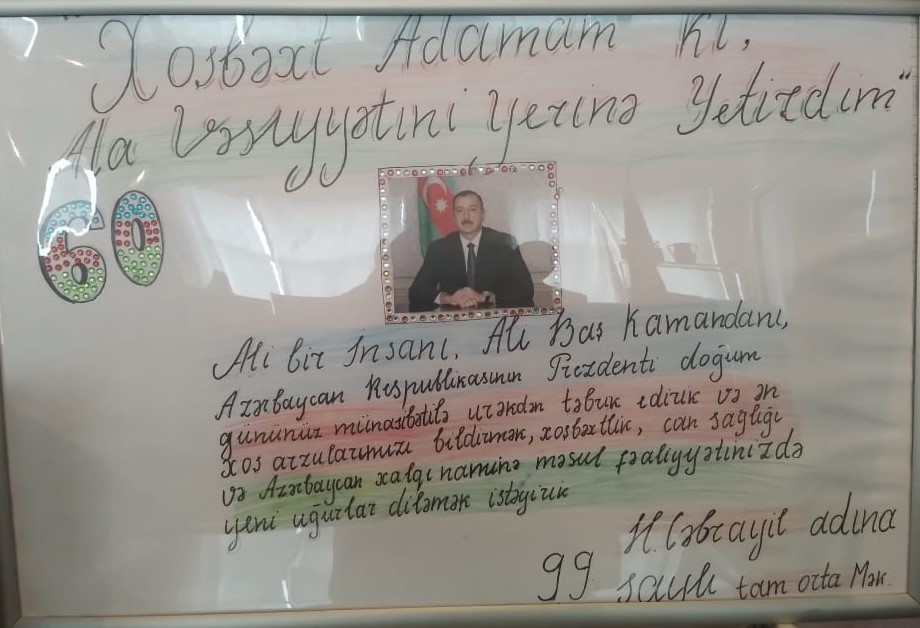 "Xosbəxt Adamam ki,
Ata Vəsiyyətini Yerinə Yetirdim"
60
Ali bir İnsanı, Ali Baş Kamandanı,
Azərbaycan Respublikasının Prezdenti doğum
gününüz münasibətilə urəkdən təbrik edirik və ən
xos arzularımızı bildirmək, xosbəxtlik, can sağlığı
və Azərbaycan xalqı naminə məsul fəaliyyətinizdə
yeni uğurlar diləmək istəyirik
H.Cəbrayil adına
99 saylı tam orta Mək.